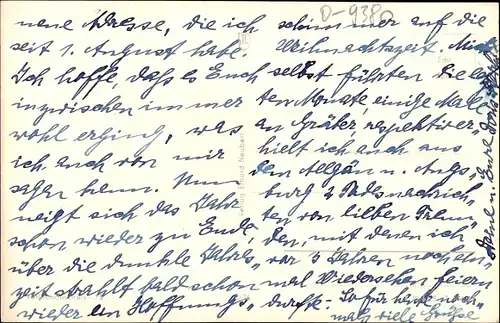 D-938
neue Adresse, die ich
seit 1. August habe.
Ich hoffe, daß es Euch
inzwischen immer
wohl erging, was
ich auch von mir
sagen kann. Nun
neigt sich das Jahr
schon wieder zu Ende,
über die dunkle Jahres-
zeit strahlt bald schon
wieder ein Hoffnungs-
schimmer auf die
Weihnachtszeit. Mich
selbst führten die letz-
ten Monate, einige Mal
an Gräber, respektive er-
hielt ich auch aus
dem Allgäu u. Augs-
burg 3 Todesnachrich-
ten von lieben Freun-
den, mit denen ich
vor 3 Jahren noch ein-
mal Wiedersehen feiern
durfte. So für heute noch-
mals viele Grüße